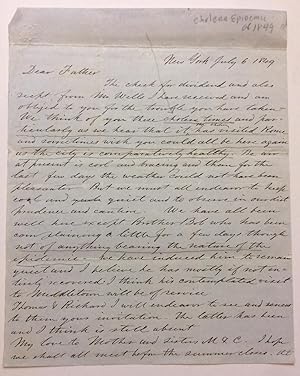 cholera Epidemic
of 1849
New York July 6 1849
Dear Father
The check for dividend and also
rect from Mr Wells I have received and am
obliged to you for the trouble you have taken
We think of you these cholera times and par-
ticularly as we hear that it has visited Rome
and sometimes wish you could all be here again
as the city is comparatively healthy. The
at present is cool and bracing and for the
last few days the weather could not have been
pleasanter But we must all endeavor to keep
cool and quiet and to observe in our diet
prudence and care We have all been
well here except Brother Bob who has been
complaining a little for a few days though
not of anything bearing the nature of the
epidemic - we have induced him to remain
quiet and I believe he has mostly if not en-
tirely recovered I think his contemplated visit
to Middletown will be of service
Thomas & Richard I will endeavor to see and
to them your invitation The latter has been
and I think is still absent
My love to Mother and sisters M & C. I hope
we shall all meet before the summer closes. At